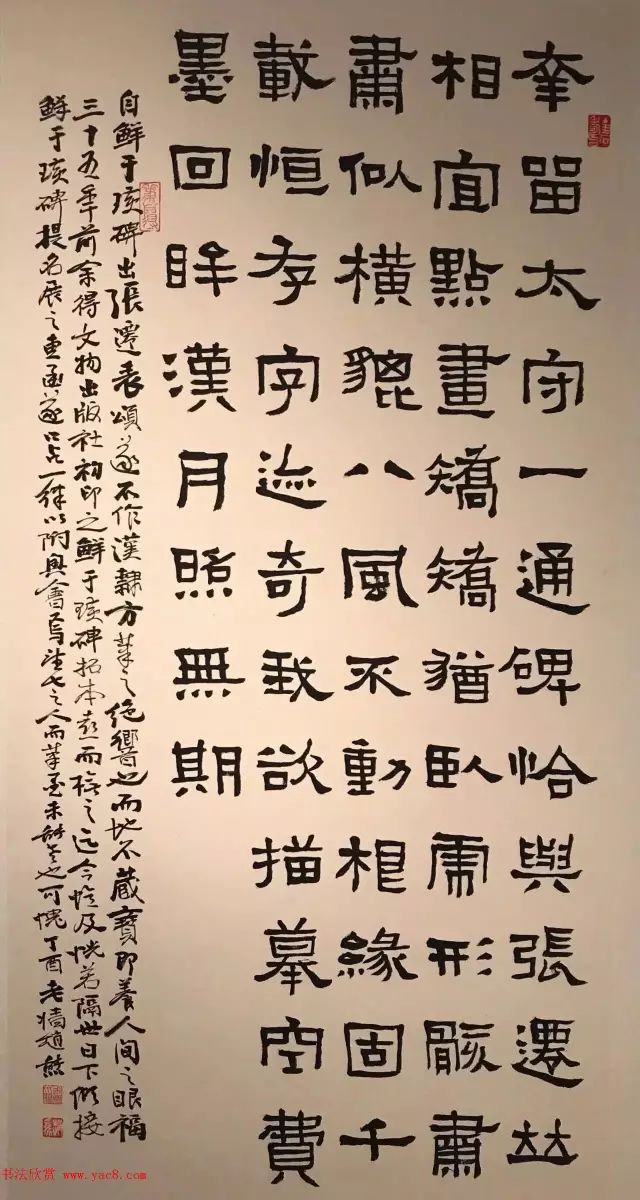 幸留太守一通碑恰與張遷竝
相宜點畫矯矯猶臥虎形骸肅
肅似橫貔八風不動根緣固千
載恒存字迹奇我欲描摹空費
墨回眸漢月照無期
自鮮于璜碑出張遷表頌遂不作漢隸方筆之絕響也而地不藏寶即養人間之眼福
三十五年前余得文物出版社初印之鮮于璜碑拓本喜而臨之迄今憶及恍若隔世日下接
鮮于璜碑提名展之惠函遂口占一律以附興會焉望七之人而筆墨未能老也可愧丁酉老墻趙熊
书法欣赏 www.yac8.com